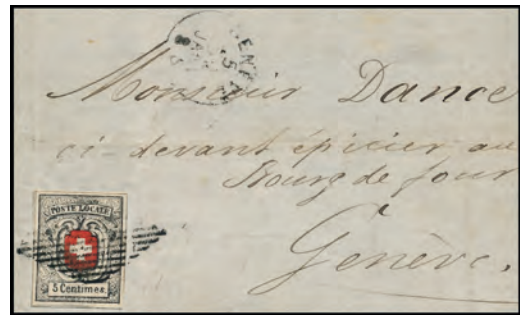 GENÈV
Monsieur Dance
ci-devant épicier au
Bourg de four
Genève.
POSTE LOCALE
5 Centimes.